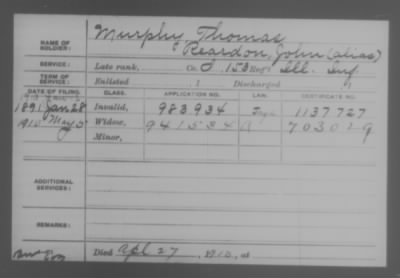 NAME OF SOLDIER: Murphy, Thomas
Reardon, John (alias)
SERVICE: Late rank, Co. I, 153 Reg't Ill. Inf
TERM OF SERVICE: Enlisted , 1 Discharged
DATE OF FILING. CLASS. APPLICATION NO. LAW. CERTIFICATE NO.
1891 Jan 28 Invalid, 983934 1137727
1910 May 5 Widow, 941534
Minor,
ADDITIONAL SERVICES:
REMARKS:
Died Apl 27, 1910, at